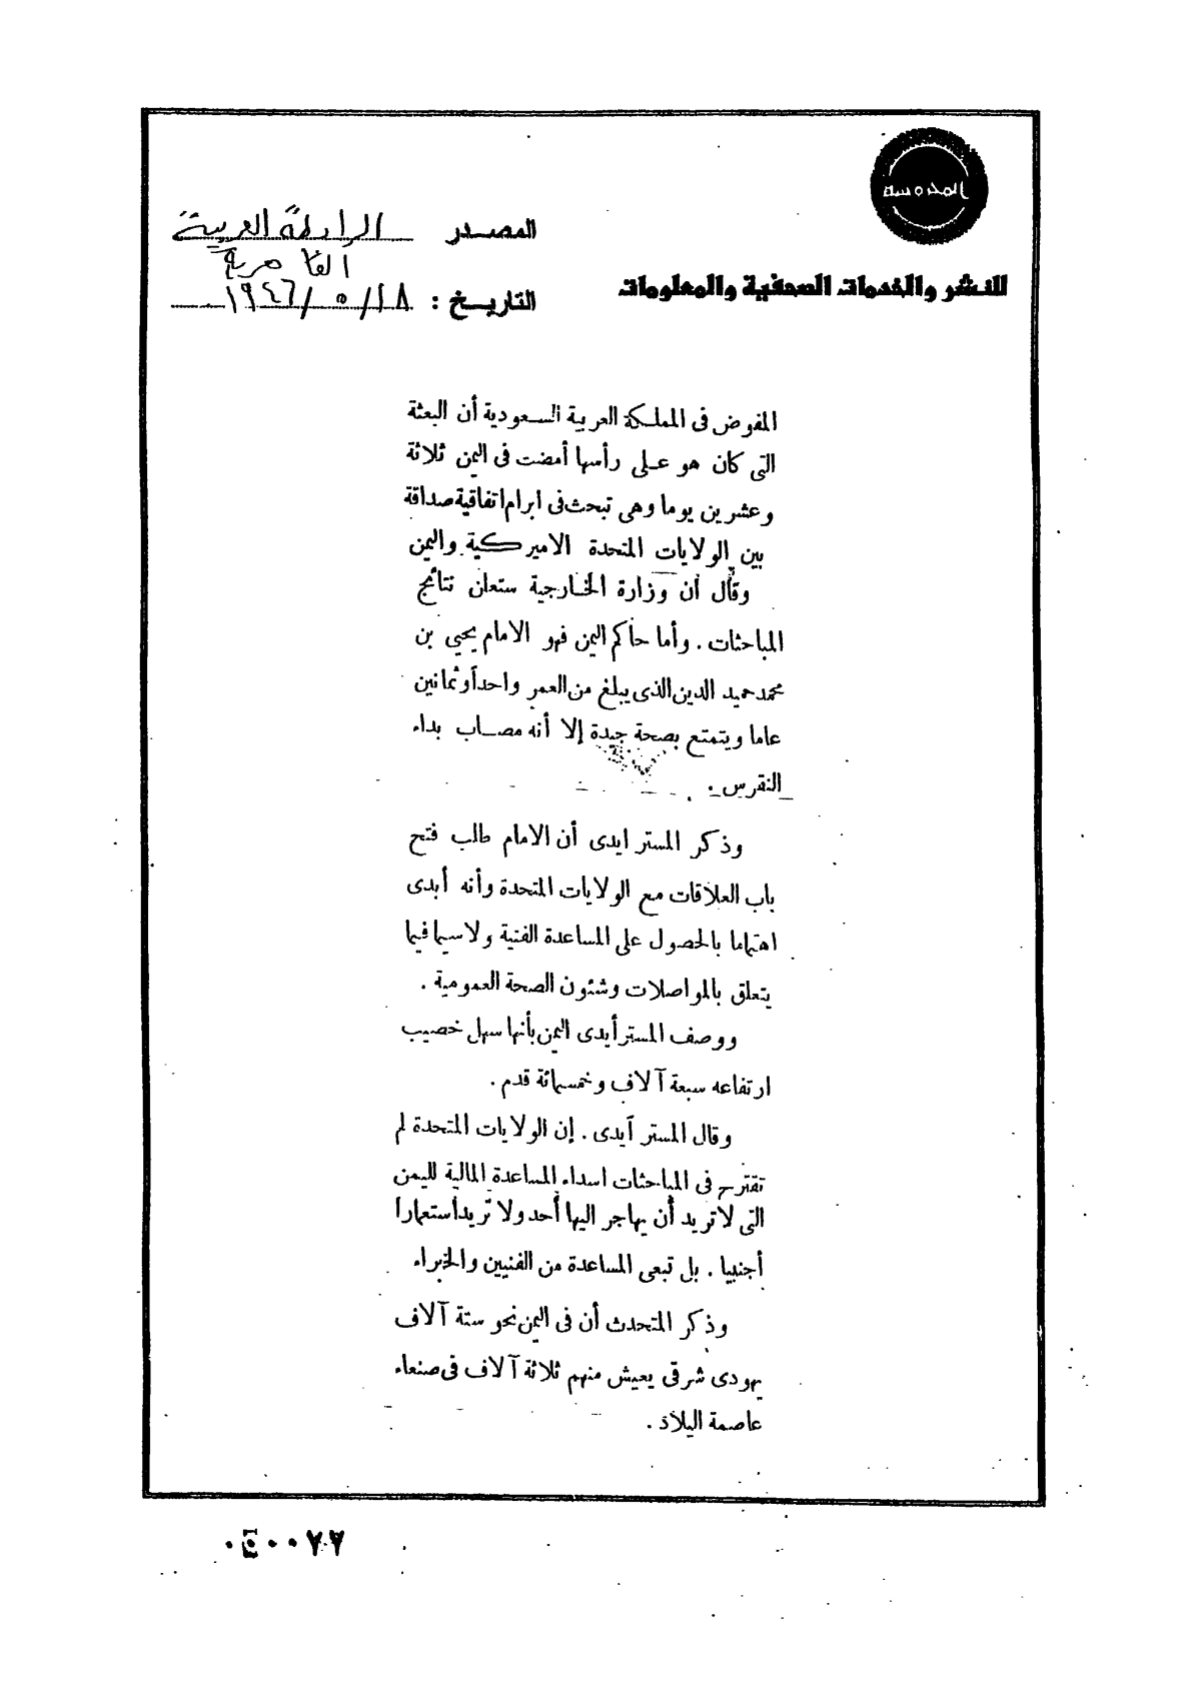 المحروسة
المصدر الرابطة العربية
القاهرية
للنشر والخدمات الصحفية والمعلومات
التاريخ : ٢٨/٥/١٩٤٦
المفوض فى المملكة العربية السعودية أن البعثة
التى كان هو على رأسها أمضت فى اليمن ثلاثة
وعشرين يوما وهى تبحث فى ابرام اتفاقية صداقة
بين الولايات المتحدة الاميركية واليمن
وقال أن وزارة الخارجية ستعلن نتائج
المباحثات . وأما حاكم اليمن فهو الامام يحيى بن
محمد حميد الدين الذى يبلغ من العمر واحداً وثمانين
عاما ويتمتع بصحة جيدة إلا أنه مصاب بداء
النقرس .
وذكر المستر ايدى أن الامام طالب فتح
باب العلاقات مع الولايات المتحدة وأنه أبدى
اهتماما بالحصول على المساعدة الفنية ولا سيما فيما
يتعلق بالمواصلات وشئون الصحة العمومية .
ووصف المستر أيدى اليمن بأنها سهل خصيب
ارتفاعه سبعة آلاف وخمسمائة قدم .
وقال المستر آيدى . إن الولايات المتحدة لم
تقترح فى المباحثات اسداء المساعدة المالية لليمن
التى لا تريد أن يهاجر اليها أحد ولا تريد استعمارا
أجنبيا . بل تبغى المساعدة من الفنيين والخبراء
وذكر المتحدث أن فى اليمن نحو ستة آلاف
يهودى شرقى يعيش منهم ثلاثة آلاف فى صنعاء
عاصمة البلاد .